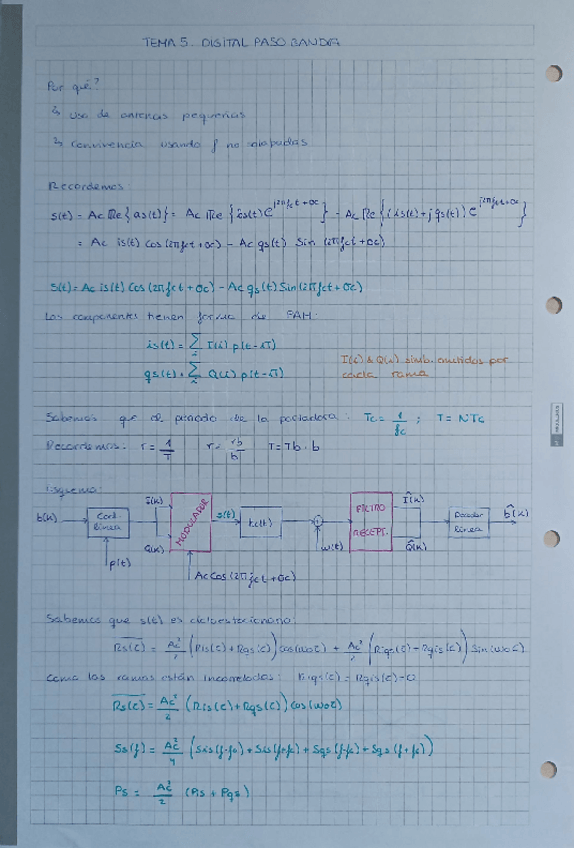 TEMA 5. DIGITAL PASO BANDA
Por qué?
↳ uso de antenas pequeñas
↳ convivencia usando f no solapadas
Recordemos:
s(t) = Ac Re{as(t)} = Ac Re{is(t) e^j2πfct+θc} - Ac Re{(is(t)+jqs(t)) e^j2πfct+θc}
= Ac is(t) cos(2πfct+θc) - Ac qs(t) Sin(2πfct+θc)
s(t) = Ac is(t) Cos(2πfct+θc) - Ac qs(t) Sin(2πfct+θc)
Las componentes tienen forma de PAM:
is(t) = Σ I(i) p(t-iT)
qs(t) = Σ Q(i) p(t-iT)
I(i) & Q(i) simb. emitidos por
cada rama
Sabemos que el periodo de la portadora: Tc = 1/fc ; T = NTc
Recordemos: r = 1/T r = rb/b T = Tb · b
Esquema:
b(k) Cod. Línea I(k) Q(k) p(t) MODULADOR s(t) Ac Cos(2πfct+θc) hc(t) w(t) FILTRO RECEPT. Î(k) Q̂(k) Decoder Línea b̂(k)
Sabemos que s(t) es cicloestacionario:
Rs(τ) = Ac²/2 (Ris(τ)+Rqs(τ)) cos(ω0τ) + Ac²/2 (Riqs(τ) - Rqis(τ)) Sin(ω0τ)
Como las ramas están incorreladas: Riqs(τ) = Rqis(τ) = 0
Rs(τ) = Ac²/2 (Ris(τ)+Rqs(τ)) cos(ω0τ)
Ss(f) = Ac²/4 (Sis(f-fc) + Sis(f+fc) + Sqs(f-fc) + Sqs(f+fc))
Ps = Ac²/2 (Pis + Pqs)